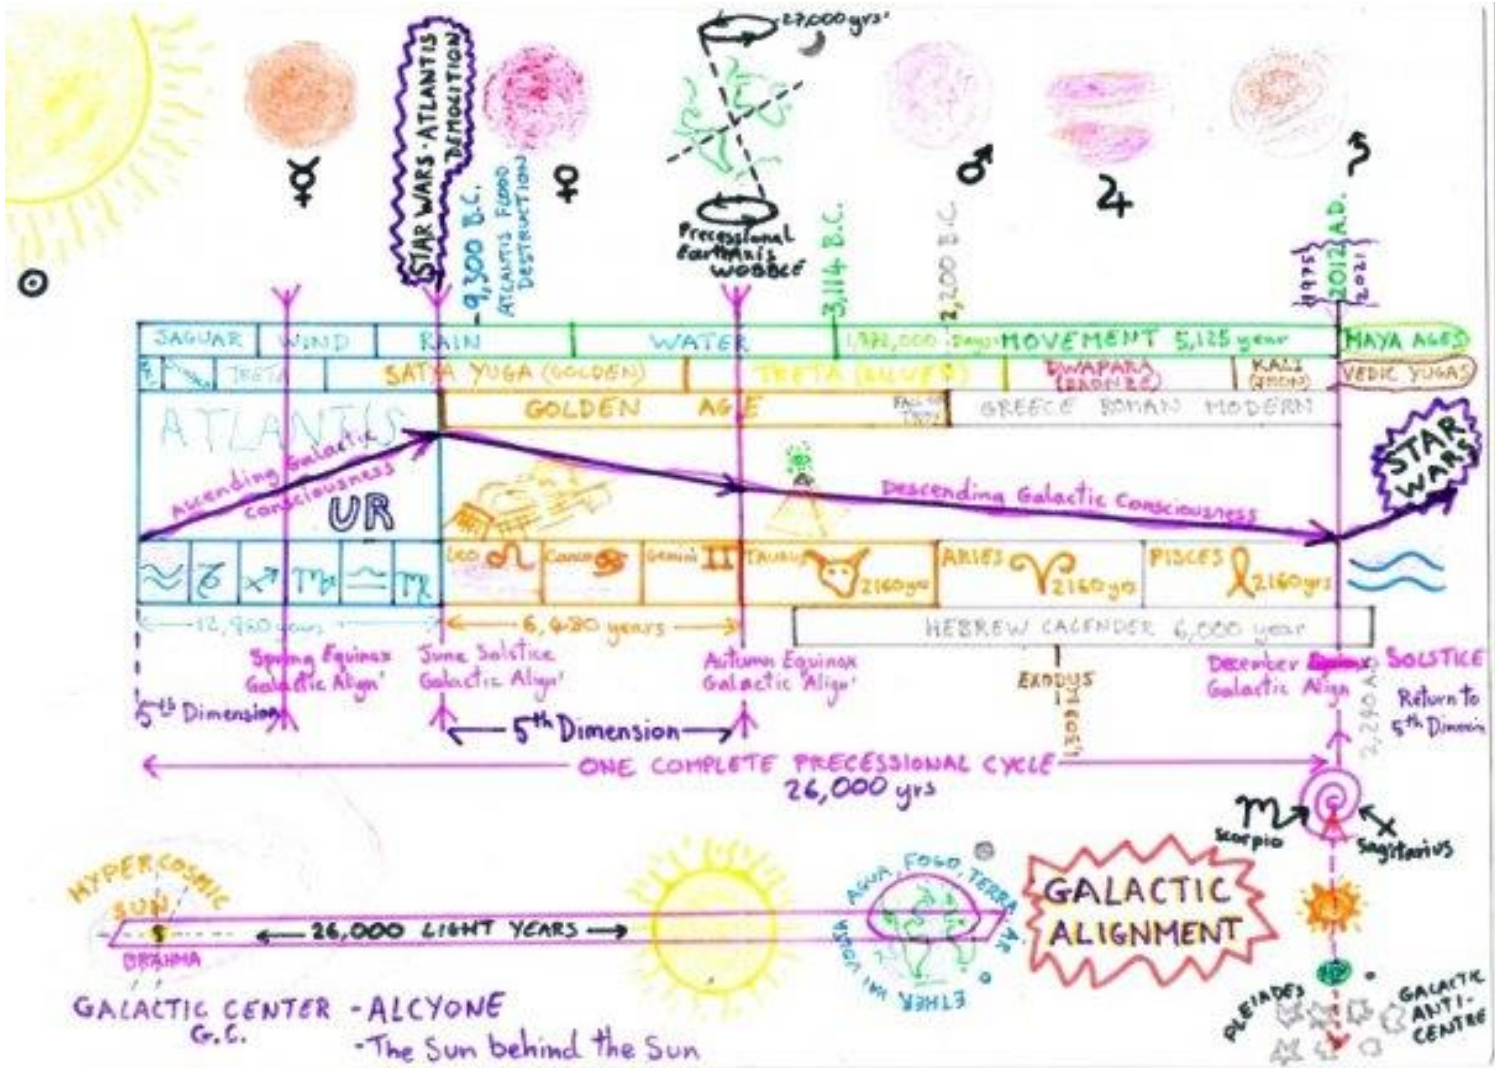 27,000 yrs'
STAR WARS · ATLANTIS
DEMOLITION
-9,300 B.C.
ATLANTIS FLOOD
DESTRUCTION
Precessional
Earth Axis
WOBBLE
3,114 B.C.
2,200 B.C.
1975
2012 A.D.
2021
JAGUAR
WIND
RAIN
WATER
MOVEMENT 5,125 year
MAYA AGES
TRETA
SATYA YUGA (GOLDEN)
TRETA (SILVER)
DWAPARA
(BRONZE)
KALI
(IRON)
VEDIC YUGAS
ATLANTIS
GOLDEN AGE
GREECE ROMAN MODERN
Ascending Galactic
Consciousness
UR
Descending Galactic Consciousness
STAR
WARS
LEO
Cancer
Gemini
TAURUS
2160 yrs
ARIES
2160 yrs
PISCES
2160 yrs
6,480 years
HEBREW CALENDER 6,000 year
Spring Equinox
Galactic Align'
June Solstice
Galactic Align'
Autumn Equinox
Galactic Align'
EXODUS
December SOLSTICE
Galactic Align
Return to
5th Dimension
5th Dimension
ONE COMPLETE PRECESSIONAL CYCLE
26,000 yrs
Scorpio
Sagitarius
HYPERCOSMIC
SUN
BRAHMA
26,000 LIGHT YEARS
AGUA, FOGO, TERRA, AR
GALACTIC
ALIGNMENT
GALACTIC CENTER - ALCYONE
G.C.
- The Sun behind the Sun
PLEIADES
GALACTIC
ANTI-
CENTRE